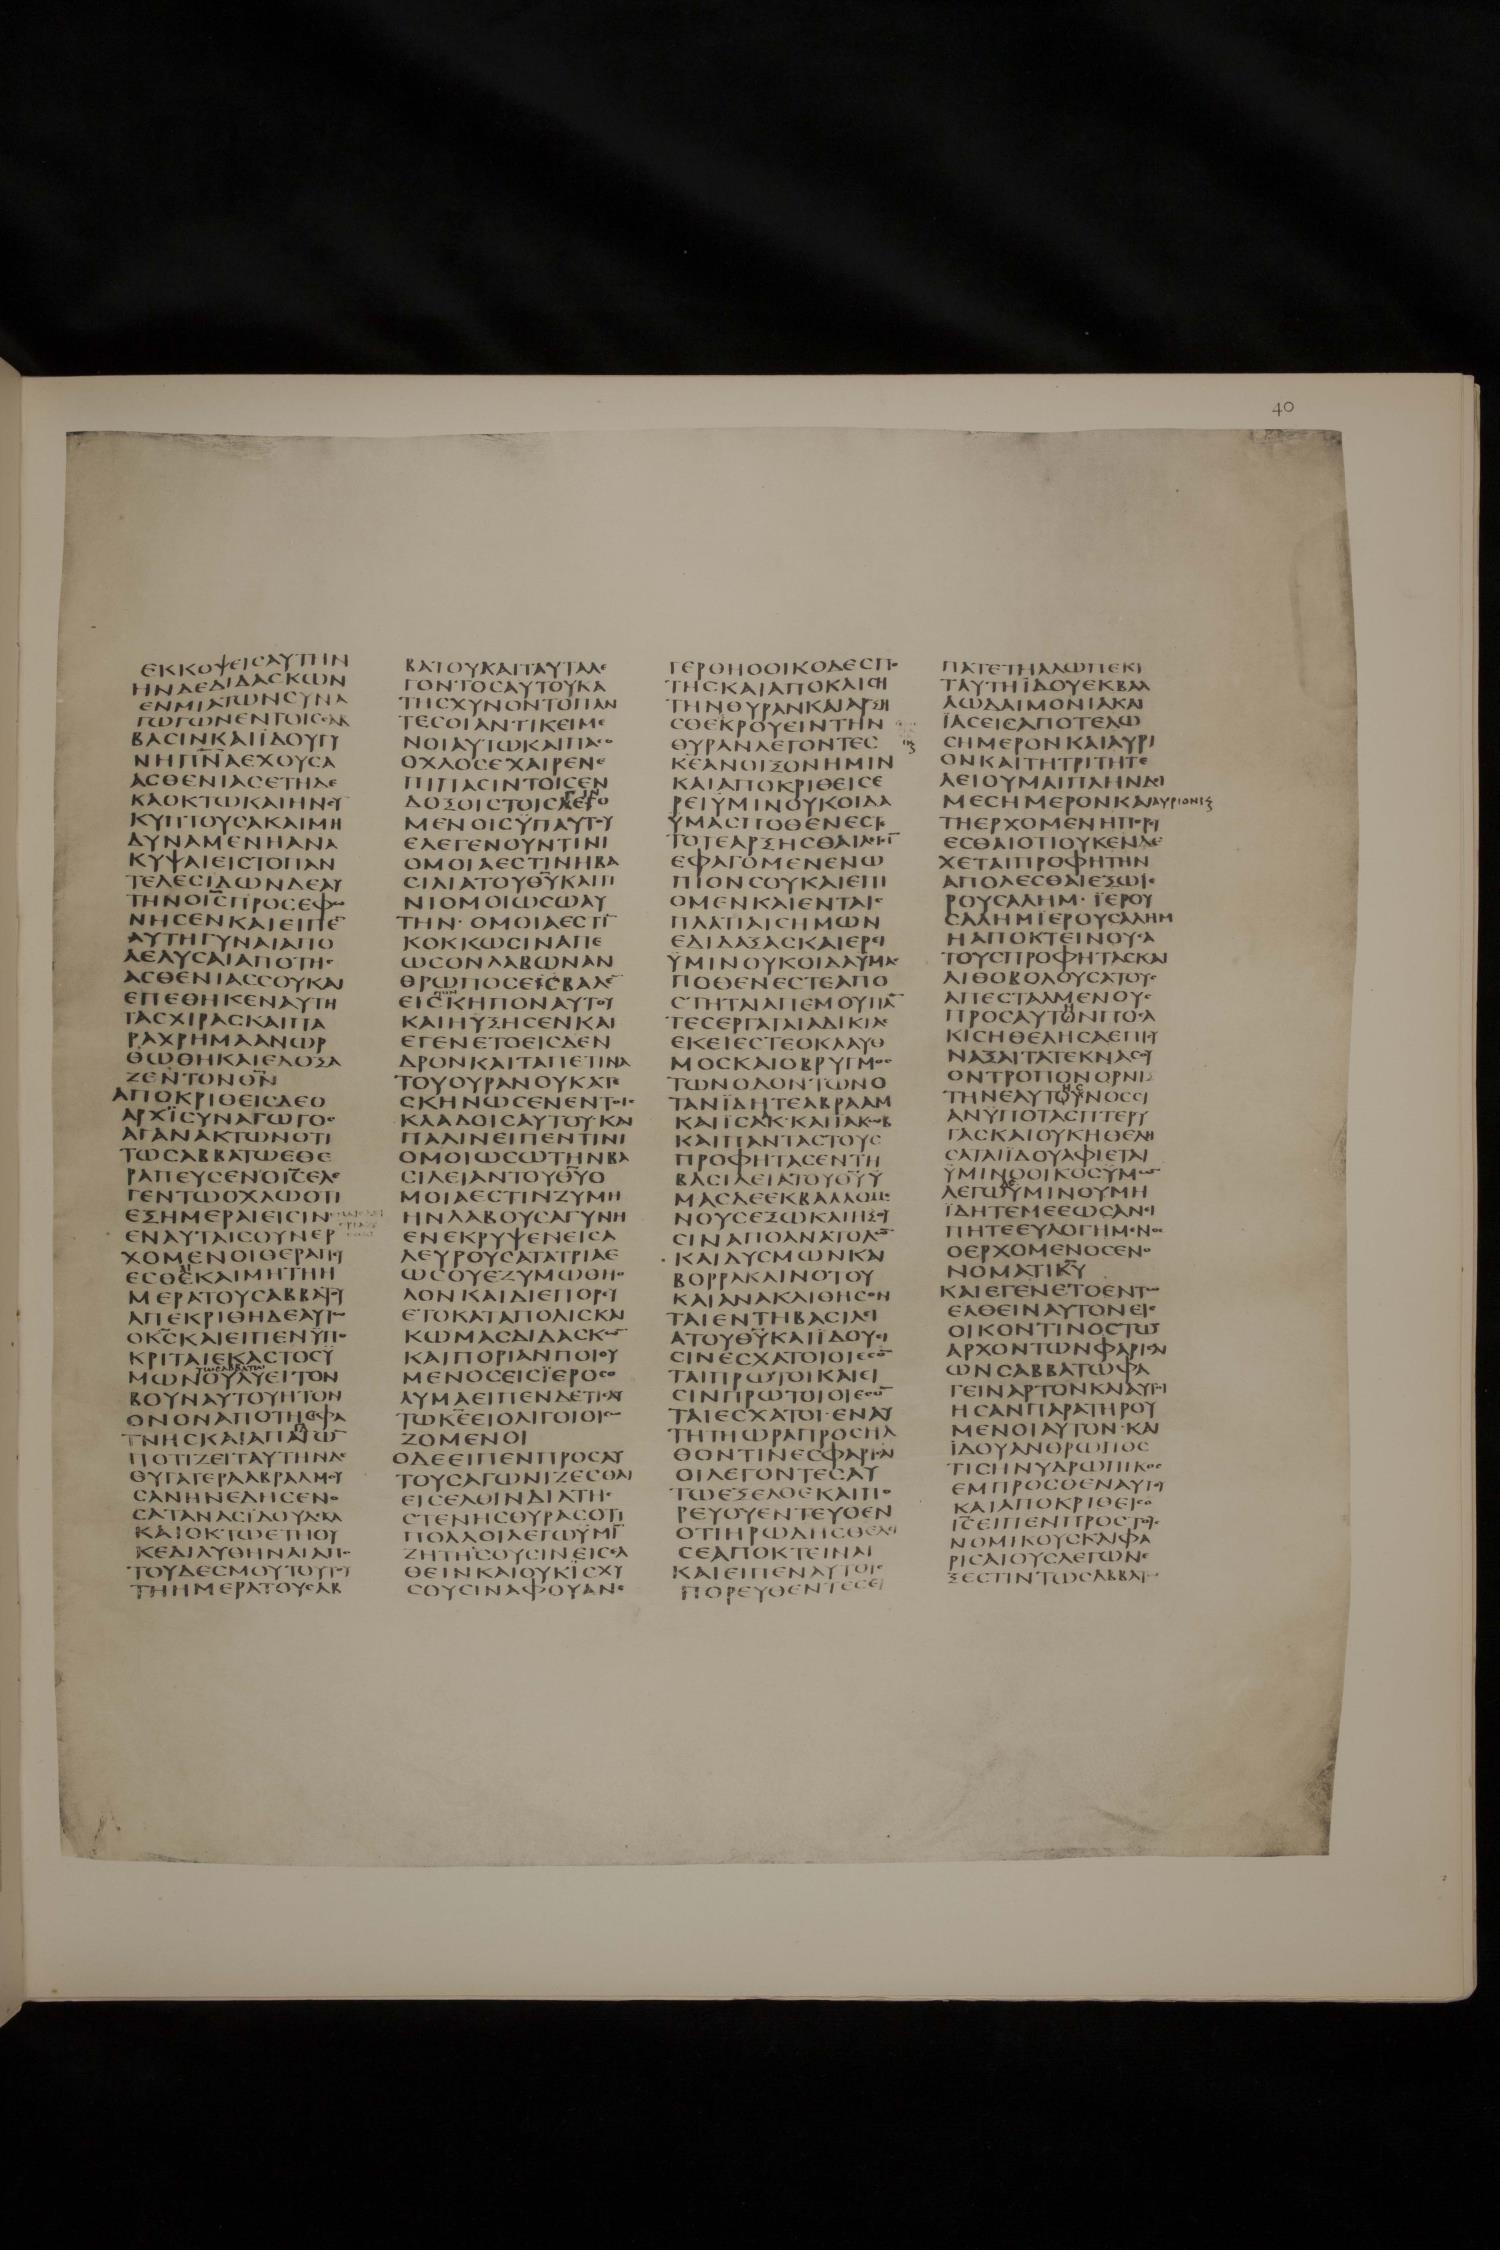 40
ΕΚΚΟΨΕΙСΑΥΤΗΝ
ΗΝΔΕΔΙΔΑСΚΩΝ
ΕΝΜΙΑΤΩΝСΥΝΑ
ΓΩΓΩΝΕΝΤΟΙССΑΒ
ΒΑСΙΝΚΑΙΪΔΟΥΓΥ
ΝΗΠΝ̅ΑΕΧΟΥСΑ
ΑСΘΕΝΙΑСΕΤΗΔΕ
ΚΑΟΚΤΩΚΑΙΗΝСΥ
ΚΥΠΤΟΥСΑΚΑΙΜΗ
ΔΥΝΑΜΕΝΗΑΝΑ
ΚΥΨΑΙΕΙСΤΟΠΑΝ
ΤΕΛΕСΙΔΩΝΔΕΑΥ
ΤΗΝΟΙ̅С̅ΠΡΟСΕΦΩ
ΝΗСΕΝΚΑΙΕΙΠΕ̅
ΑΥΤΗΓΥΝΑΙΑΠΟ
ΛΕΛΥСΑΙΑΠΟΤΗС
ΑСΘΕΝΙΑССΟΥΚΑΙ
ΕΠΕΘΗΚΕΝΑΥΤΗ
ΤΑСΧΙΡΑСΚΑΙΠΑ
ΡΑΧΡΗΜΑΑΝΩΡ
ΘΩΘΗΚΑΙΕΔΟΞΑ
ΖΕΝΤΟΝΘ̅Ν̅
ΑΠΟΚΡΙΘΕΙСΔΕΟ
ΑΡΧΪСΥΝΑΓΩΓΟС
ΑΓΑΝΑΚΤΩΝΟΤΙ
ΤΩСΑΒΒΑΤΩΕΘΕ
ΡΑΠΕΥСΕΝΟΙ̅С̅ΕΛΕ
ΓΕΝΤΩΟΧΛΩΟΤΙ
ΕΞΗΜΕΡΑΙΕΙСΙΝ
ΕΝΑΥΤΑΙСΟΥΝΕΡ
ΧΟΜΕΝΟΙΘΕΡΑΠΕΥ
ΕСΘΕΚΑΙΜΗΤΗΗ
ΜΕΡΑΤΟΥСΑΒΒΑΤΟΥ
ΑΠΕΚΡΙΘΗΔΕΑΥΤΩ
ΟΚ̅С̅ΚΑΙΕΙΠΕΝΫΠΟ
ΚΡΙΤΑΙΕΚΑСΤΟСΫ
ΤΩСΑΒΒΑΤΩ
ΜΩΝΟΥΛΥΕΙΤΟΝ
ΒΟΥΝΑΥΤΟΥΗΤΟΝ
ΟΝΟΝΑΠΟΤΗСΦΑ
ΤΝΗСΚΑΙΑΠΑΓΩ̅
ΠΟΤΙΖΕΙΤΑΥΤΗΝΔΕ
ΘΥΓΑΤΕΡΑΑΒΡΑΑΜΟΥ
СΑΝΗΝΕΔΗСΕΝΟ
СΑΤΑΝΑСΪΔΟΥΔΕΚΑ
ΚΑΙΟΚΤΩΕΤΗΟΥ
ΚΕΔΙΛΥΘΗΝΑΙΑΠΟ
ΤΟΥΔΕСΜΟΥΤΟΥΤΟΥ
ΤΗΗΜΕΡΑΤΟΥСΑΒ
ΒΑΤΟΥΚΑΙΤΑΥΤΑΛΕ
ΓΟΝΤΟСΑΥΤΟΥΚΑ
ΤΗСΧΥΝΟΝΤΟΠΑΝ
ΤΕСΟΙΑΝΤΙΚΕΙΜΕ
ΝΟΙΑΥΤΩΚΑΙΠΑСΟ
ΟΧΛΟСΕΧΑΙΡΕΝΕ
ΠΙΠΑСΙΝΤΟΙСΕΝ
ΔΟΞΟΙСΤΟΙСΛΕΓΟ
ΜΕΝΟΙСΫΠΑΥΤΟΥ
ΕΛΕΓΕΝΟΥΝΤΙΝΙ
ΟΜΟΙΑΕСΤΙΝΗΒΑ
СΙΛΙΑΤΟΥΘ̅Υ̅ΚΑΙΤΙ
ΝΙΟΜΟΙΩСΩΑΥ
ΤΗΝ· ΟΜΟΙΑΕСΤΙ̅
ΚΟΚΚΩСΙΝΑΠΕ
ΩСΟΝΛΑΒΩΝΑΝ
ΘΡΩΠΟСΕΙСΒΑΛΕ̅
ΕΙСΚΗΠΟΝΑΥΤΟΥ
ΚΑΙΗΫΞΗСΕΝΚΑΙ
ΕΓΕΝΕΤΟΕΙСΔΕΝ
ΔΡΟΝΚΑΙΤΑΠΕΤΙΝΑ
ΤΟΥΟΥΡΑΝΟΥΚΑΤΕ
СΚΗΝΩСΕΝΕΝΤΟΙС
ΚΛΑΔΟΙСΑΥΤΟΥ·ΚΑΙ
ΠΑΛΙΝΕΙΠΕΝΤΙΝΙ
ΟΜΟΙΩСΩΤΗΝΒΑ
СΙΛΕΙΑΝΤΟΥΘ̅Υ̅Ο
ΜΟΙΑΕСΤΙΝΖΥΜΗ
ΗΝΛΑΒΟΥСΑΓΥΝΗ
ΕΝΕΚΡΥΨΕΝΕΙСΑ
ΛΕΥΡΟΥСΑΤΑΤΡΙΑΕ
ΩСΟΥΕΖΥΜΩΘΗΟ
ΛΟΝΚΑΙΔΙΕΠΟΡΕΥ
ΕΤΟΚΑΤΑΠΟΛΙСΚΑΙ
ΚΩΜΑСΔΙΔΑСΚΩ̅
ΚΑΙΠΟΡΙΑΝΠΟΙΟΥ
ΜΕΝΟСΕΙСΪΕΡΟСΟ
ΛΥΜΑΕΙΠΕΝΔΕΤΙСΑΥ
ΤΩΚ̅Ε̅ΕΙΟΛΙΓΟΙΟΙСΩ
ΖΟΜΕΝΟΙ
ΟΔΕΕΙΠΕΝΠΡΟСΑΥ
ΤΟΥСΑΓΩΝΙΖΕСΘΑΙ
ΕΙСΕΛΘΙΝΔΙΑΤΗС
СΤΕΝΗСΘΥΡΑСΟΤΙ
ΠΟΛΛΟΙΛΕΓΩΫΜΙ̅
ΖΗΤΗСΟΥСΙΝΕΙСΕΛ
ΘΕΙΝΚΑΙΟΥΚΪСΧΥ
СΟΥСΙΝΑΦΟΥΑΝΕ
ΓΕΡΘΗΟΟΙΚΟΔΕСΠΟ
ΤΗСΚΑΙΑΠΟΚΛΙСΗ
ΤΗΝΘΥΡΑΝΚΑΙΑΡΞΗ
СΘΕΚΡΟΥΕΙΝΤΗΝ
ΘΥΡΑΝΛΕΓΟΝΤΕС
Κ̅Ε̅ΑΝΟΙΞΟΝΗΜΙΝ
ΚΑΙΑΠΟΚΡΙΘΕΙСΕ
ΡΕΙΫΜΙΝΟΥΚΟΙΔΑ
ΥΜΑСΠΟΘΕΝΕСΤΕ
ΤΟΤΕΑΡΞΗСΘΑΙΛΕΓΙ̅
ΕΦΑΓΟΜΕΝΕΝΩ
ΠΙΟΝСΟΥΚΑΙΕΠΙ
ΟΜΕΝΚΑΙΕΝΤΑΙС
ΠΛΑΤΙΑΙСΗΜΩΝ
ΕΔΙΔΑΞΑСΚΑΙΕΡΕΙ
ΫΜΙΝΟΥΚΟΙΔΑΥΜΑС
ΠΟΘΕΝΕСΤΕΑΠΟ
СΤΗΤΑΙΑΠΕΜΟΥΠΑ̅
ΤΕСΕΡΓΑΤΑΙΑΔΙΚΙΑС
ΕΚΕΙΕСΤΕΟΚΛΑΥΘ
ΜΟСΚΑΙΟΒΡΥΓΜΟС
ΤΩΝΟΔΟΝΤΩΝΟ
ΤΑΝΪΔΗΤΕΑΒΡΑΑΜ
ΚΑΙΪСΑΚ·ΚΑΙΪΑΚΩΒ
ΚΑΙΠΑΝΤΑСΤΟΥС
ΠΡΟΦΗΤΑСΕΝΤΗ
ΒΑСΙΛΕΙΑΤΟΥΘ̅Υ̅Ϋ
ΜΑСΔΕΕΚΒΑΛΛΟΜΕ
ΝΟΥСΕΞΩΚΑΙΗΞΟΥ
СΙΝΑΠΟΑΝΑΤΟΛΩ̅
ΚΑΙΔΥСΜΩΝΚΑΙ
ΒΟΡΡΑΚΑΙΝΟΤΟΥ
ΚΑΙΑΝΑΚΛΙΘΗСΟΝ
ΤΑΙΕΝΤΗΒΑСΙΛΕΙ
ΑΤΟΥΘ̅Υ̅ΚΑΙΪΔΟΥΕΙ
СΙΝΕСΧΑΤΟΙΟΙΕСΟ̅
ΤΑΙΠΡΩΤΟΙΚΑΙΕΙ
СΙΝΠΡΩΤΟΙΟΙΕСΟ̅
ΤΑΙΕСΧΑΤΟΙ·ΕΝΑΥ
ΤΗΤΗΩΡΑΠΡΟСΗΛ
ΘΟΝΤΙΝΕСΦΑΡΙСΑΙ
ΟΙΛΕΓΟΝΤΕСΑΥ
ΤΩΕΞΕΛΘΕΚΑΙΠΟ
ΡΕΥΟΥΕΝΤΕΥΘΕΝ
ΟΤΙΗΡΩΔΗСΘΕΛΕΙ
СΕΑΠΟΚΤΕΙΝΑΙ
ΚΑΙΕΙΠΕΝΑΥΤΟΙС
ΠΟΡΕΥΘΕΝΤΕСΕΙ
ΠΑΤΕΤΗΑΛΩΠΕΚΙ
ΤΑΥΤΗΪΔΟΥΕΚΒΑΛ
ΛΩΔΑΙΜΟΝΙΑΚΑΙ
ΪΑСΕΙСΑΠΟΤΕΛΩ
СΗΜΕΡΟΝΚΑΙΑΥΡΙ
ΟΝΚΑΙΤΗΤΡΙΤΗΤΕ
ΛΕΙΟΥΜΑΙΠΛΗΝΔΕΙ
ΜΕСΗΜΕΡΟΝΚΑΙΑΥΡΙΟΝΚΑΙ
ΤΗΕΡΧΟΜΕΝΗΠΟΡΕΥ
ΕСΘΑΙΟΤΙΟΥΚΕΝΔΕ
ΧΕΤΑΙΠΡΟΦΗΤΗΝ
ΑΠΟΛΕСΘΑΙΕΞΩΪΕ
ΡΟΥСΑΛΗΜ· ΪΕΡΟΥ
СΑΛΗΜΪΕΡΟΥСΑΛΗΜ
ΗΑΠΟΚΤΕΙΝΟΥСΑ
ΤΟΥСΠΡΟΦΗΤΑСΚΑΙ
ΛΙΘΟΒΟΛΟΥСΑΤΟΥС
ΑΠΕСΤΑΛΜΕΝΟΥС
ΠΡΟСΑΥΤΟΝΠΟСΑ
ΚΙСΗΘΕΛΗСΑΕΠΙСΥ
ΝΑΞΑΙΤΑΤΕΚΝΑСΟΥ
ΟΝΤΡΟΠΟΝΟΡΝΙС
ΤΗΝΕΑΥΤΟΥΝΟССΙ
ΑΝΫΠΟΤΑСΠΤΕΡΥ
ΓΑСΚΑΙΟΥΚΗΘΕΛΗ
СΑΤΑΙΪΔΟΥΑΦΙΕΤΑΙ
ΫΜΙΝΟΟΙΚΟСΫΜΩ̅
ΛΕΓΩΫΜΙΝΟΥΜΗ
ΪΔΗΤΕΜΕΕΩСΑΝΕΙ
ΠΗΤΕΕΥΛΟΓΗΜΕΝΟС
ΟΕΡΧΟΜΕΝΟСΕΝΟ
ΝΟΜΑΤΙΚ̅Υ̅
ΚΑΙΕΓΕΝΕΤΟΕΝΤΩ
ΕΛΘΕΙΝΑΥΤΟΝΕΙС
ΟΙΚΟΝΤΙΝΟСΤΩ̅
ΑΡΧΟΝΤΩΝΦΑΡΙСΑΙ
ΩΝСΑΒΒΑΤΩΦΑ
ΓΕΙΝΑΡΤΟΝΚΑΙΑΥΤΟΙ
ΗСΑΝΠΑΡΑΤΗΡΟΥ
ΜΕΝΟΙΑΥΤΟΝ·ΚΑΙ
ΪΔΟΥΑΝΘΡΩΠΟС
ΤΙСΗΝΥΔΡΩΠΙΚΟС
ΕΜΠΡΟСΘΕΝΑΥΤΟΥ
ΚΑΙΑΠΟΚΡΙΘΕΙСΟ
Ι̅С̅ΕΙΠΕΝΠΡΟСΤΟΥС
ΝΟΜΙΚΟΥСΚΑΙΦΑ
ΡΙСΑΙΟΥСΛΕΓΩΝΕ
ΞΕСΤΙΝΤΩСΑΒΒΑΤΩ